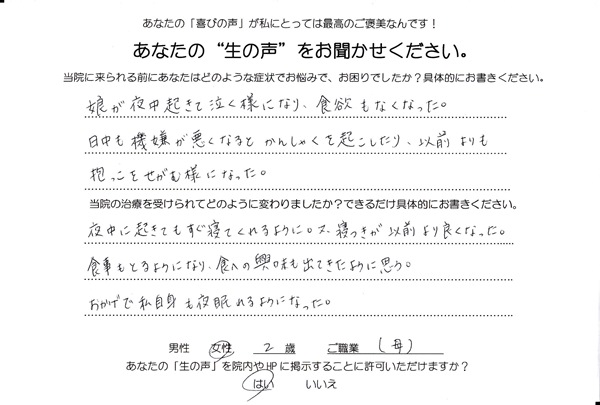 あなたの「喜びの声」が私にとっては最高のご褒美なんです！
あなたの“生の声”をお聞かせください。
当院に来られる前にあなたはどのような症状でお悩みで、お困りでしたか？具体的にお書きください。
娘が夜中起きて泣く様になり、食欲もなくなった。
日中も機嫌が悪くなるとかんしゃくを起こしたり、以前よりも
抱っこをせがむ様になった。
当院の治療を受けられてどのように変わりましたか？できるだけ具体的にお書きください。
夜中に起きてもすぐ寝てくれるように。又、寝つきが以前より良くなった。
食事もとるようになり、食への興味も出てきたように思う。
おかげで私自身も夜眠れるようになった。
男性 女性 2 歳 ご職業 （母）
あなたの「生の声」を院内やHPに掲示することに許可いただけますか？
はい いいえ